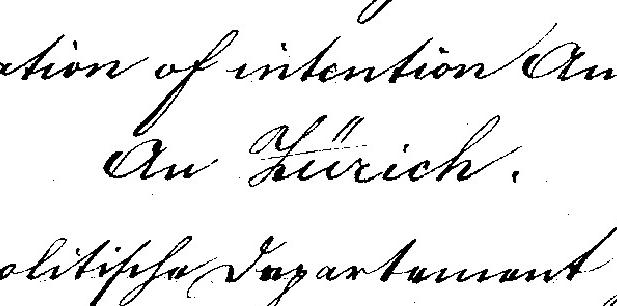 ation of intention An
An Zürich.
olitische Departement